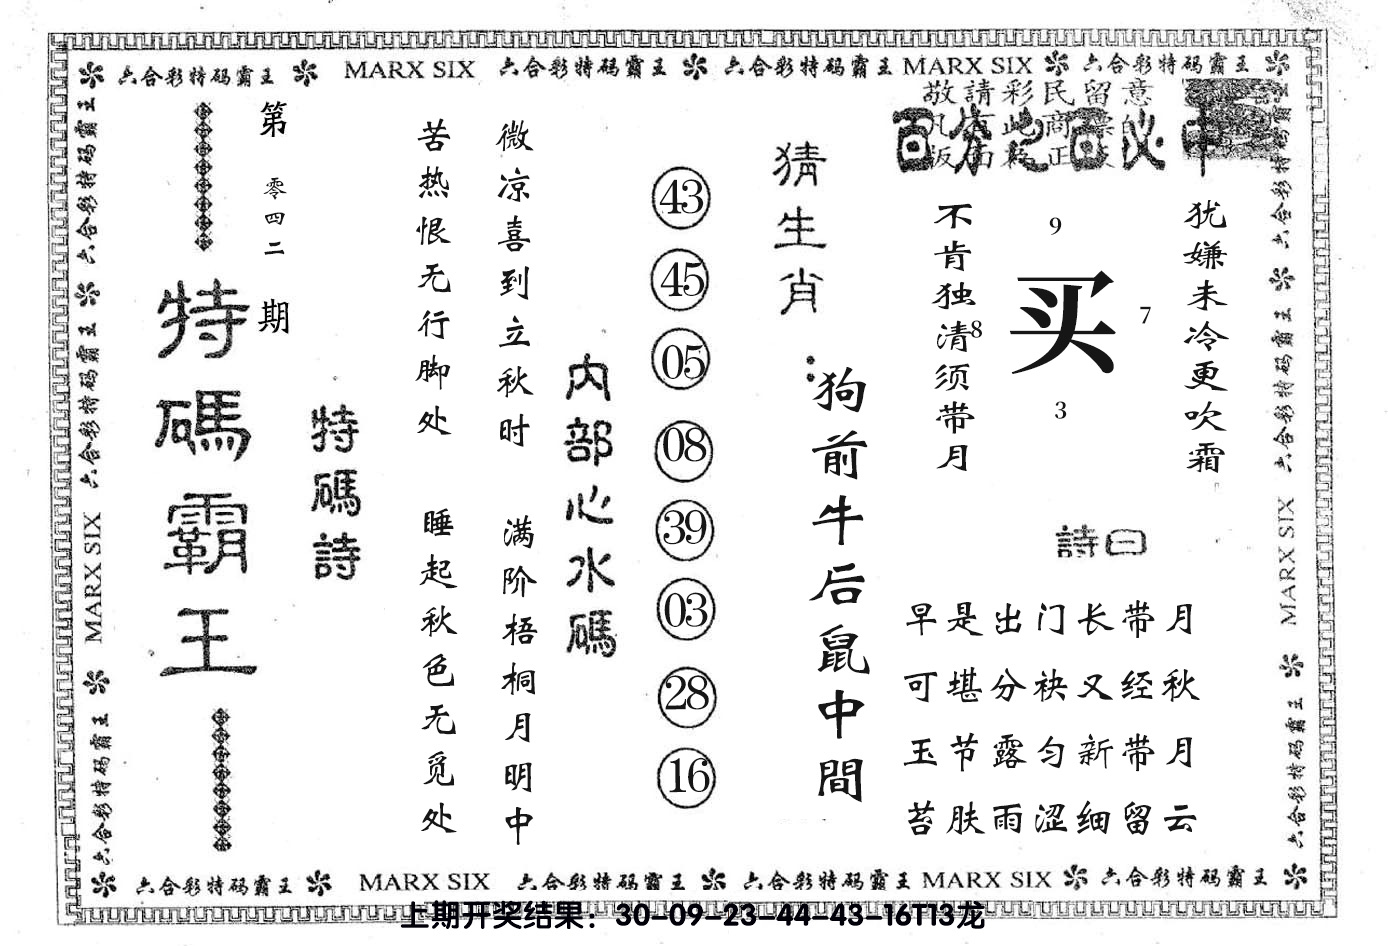 六合彩特码霸王 MARX SIX 六合彩特码霸王 六合彩特码霸王 MARX SIX 六合彩特码霸王
敬請彩民留意
百分之百必中
犹嫌未冷更吹霜
买
9
7
8
3
不肯独清须带月
詩曰
早是出门长带月
可堪分袂又经秋
玉节露匀新带月
苔肤雨涩细留云
猜生肖:
狗前牛后鼠中間
43
45
05
08
39
03
28
16
内部心水碼
微凉喜到立秋时
满阶梧桐月明中
苦热恨无行脚处
睡起秋色无觅处
特碼詩
第零四二期
特碼霸王
六合彩特码霸王
六合彩特码霸王
MARX SIX
六合彩特码霸王
六合彩特码霸王
六合彩特码霸王
MARX SIX
六合彩特码霸王
六合彩特码霸王 MARX SIX 六合彩特码霸王 六合彩特码霸王 MARX SIX 六合彩特码霸王
上期开奖结果：30-09-23-44-43-16T13龙